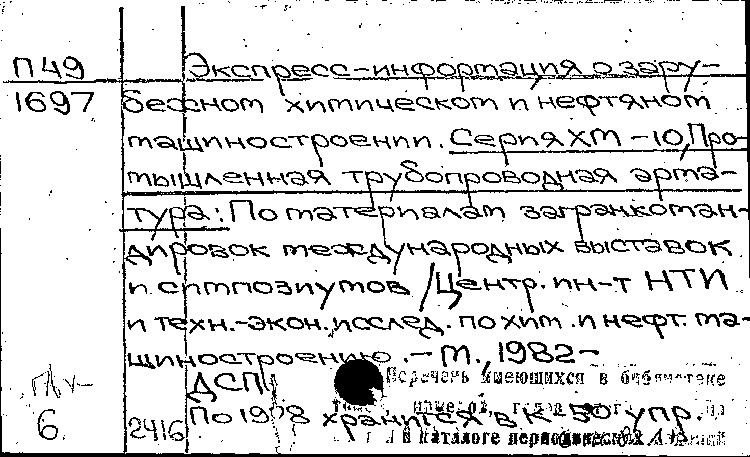 П49 Экспресс-информация о зару-
1697 бежном химическом и нефтяном
машиностроении. Серия ХМ-10, Про-
мышленная трубопроводная арма-
тура: По материалам загранкоман-
дировок международных выставок
и симпозиумов / Центр. ин-т НТИ
и техн.-экон. исслед. по хим. и нефт. ма-
шиностроению. - М., 1982-
ДСП Перечень имеющихся в библиотеке
6. 2416 По 1978 хранится в к. 50 упр.
в каталоге периодических изданий